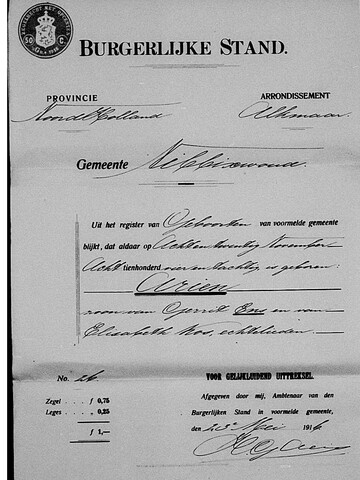 50 C.
BURGERLIJKE STAND.
PROVINCIE ARRONDISSEMENT
Noordholland Alkmaar
Gemeente Nibbixwoud
Uit het register van Geboorten van voormelde gemeente
blijkt, dat aldaar op Acht en twintig November
Acht tienhonderd vier en tachtig is geboren:
Arien
zoon van Gerrit Ens en van
Elisabeth Vos, echtelieden.
No. 26. VOOR GELIJKLUIDEND UITTREKSEL.
Zegel . . f 0,75 Afgegeven door mij, Ambtenaar van den
Leges . . " 0,25 Burgerlijken Stand in voormelde gemeente,
f 1,— den 23e Mei 1916